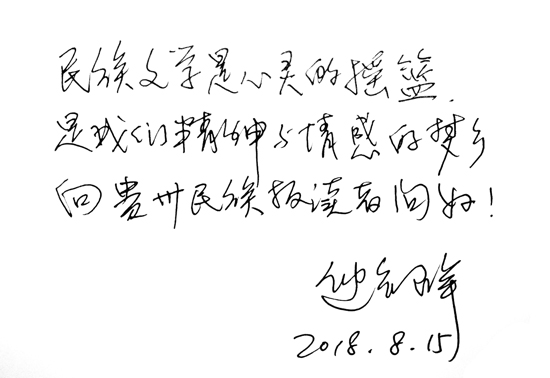 民族文学是心灵的摇篮，
是我们精神与情感的梦乡
向贵州民族报读者问好！
2018.8.15